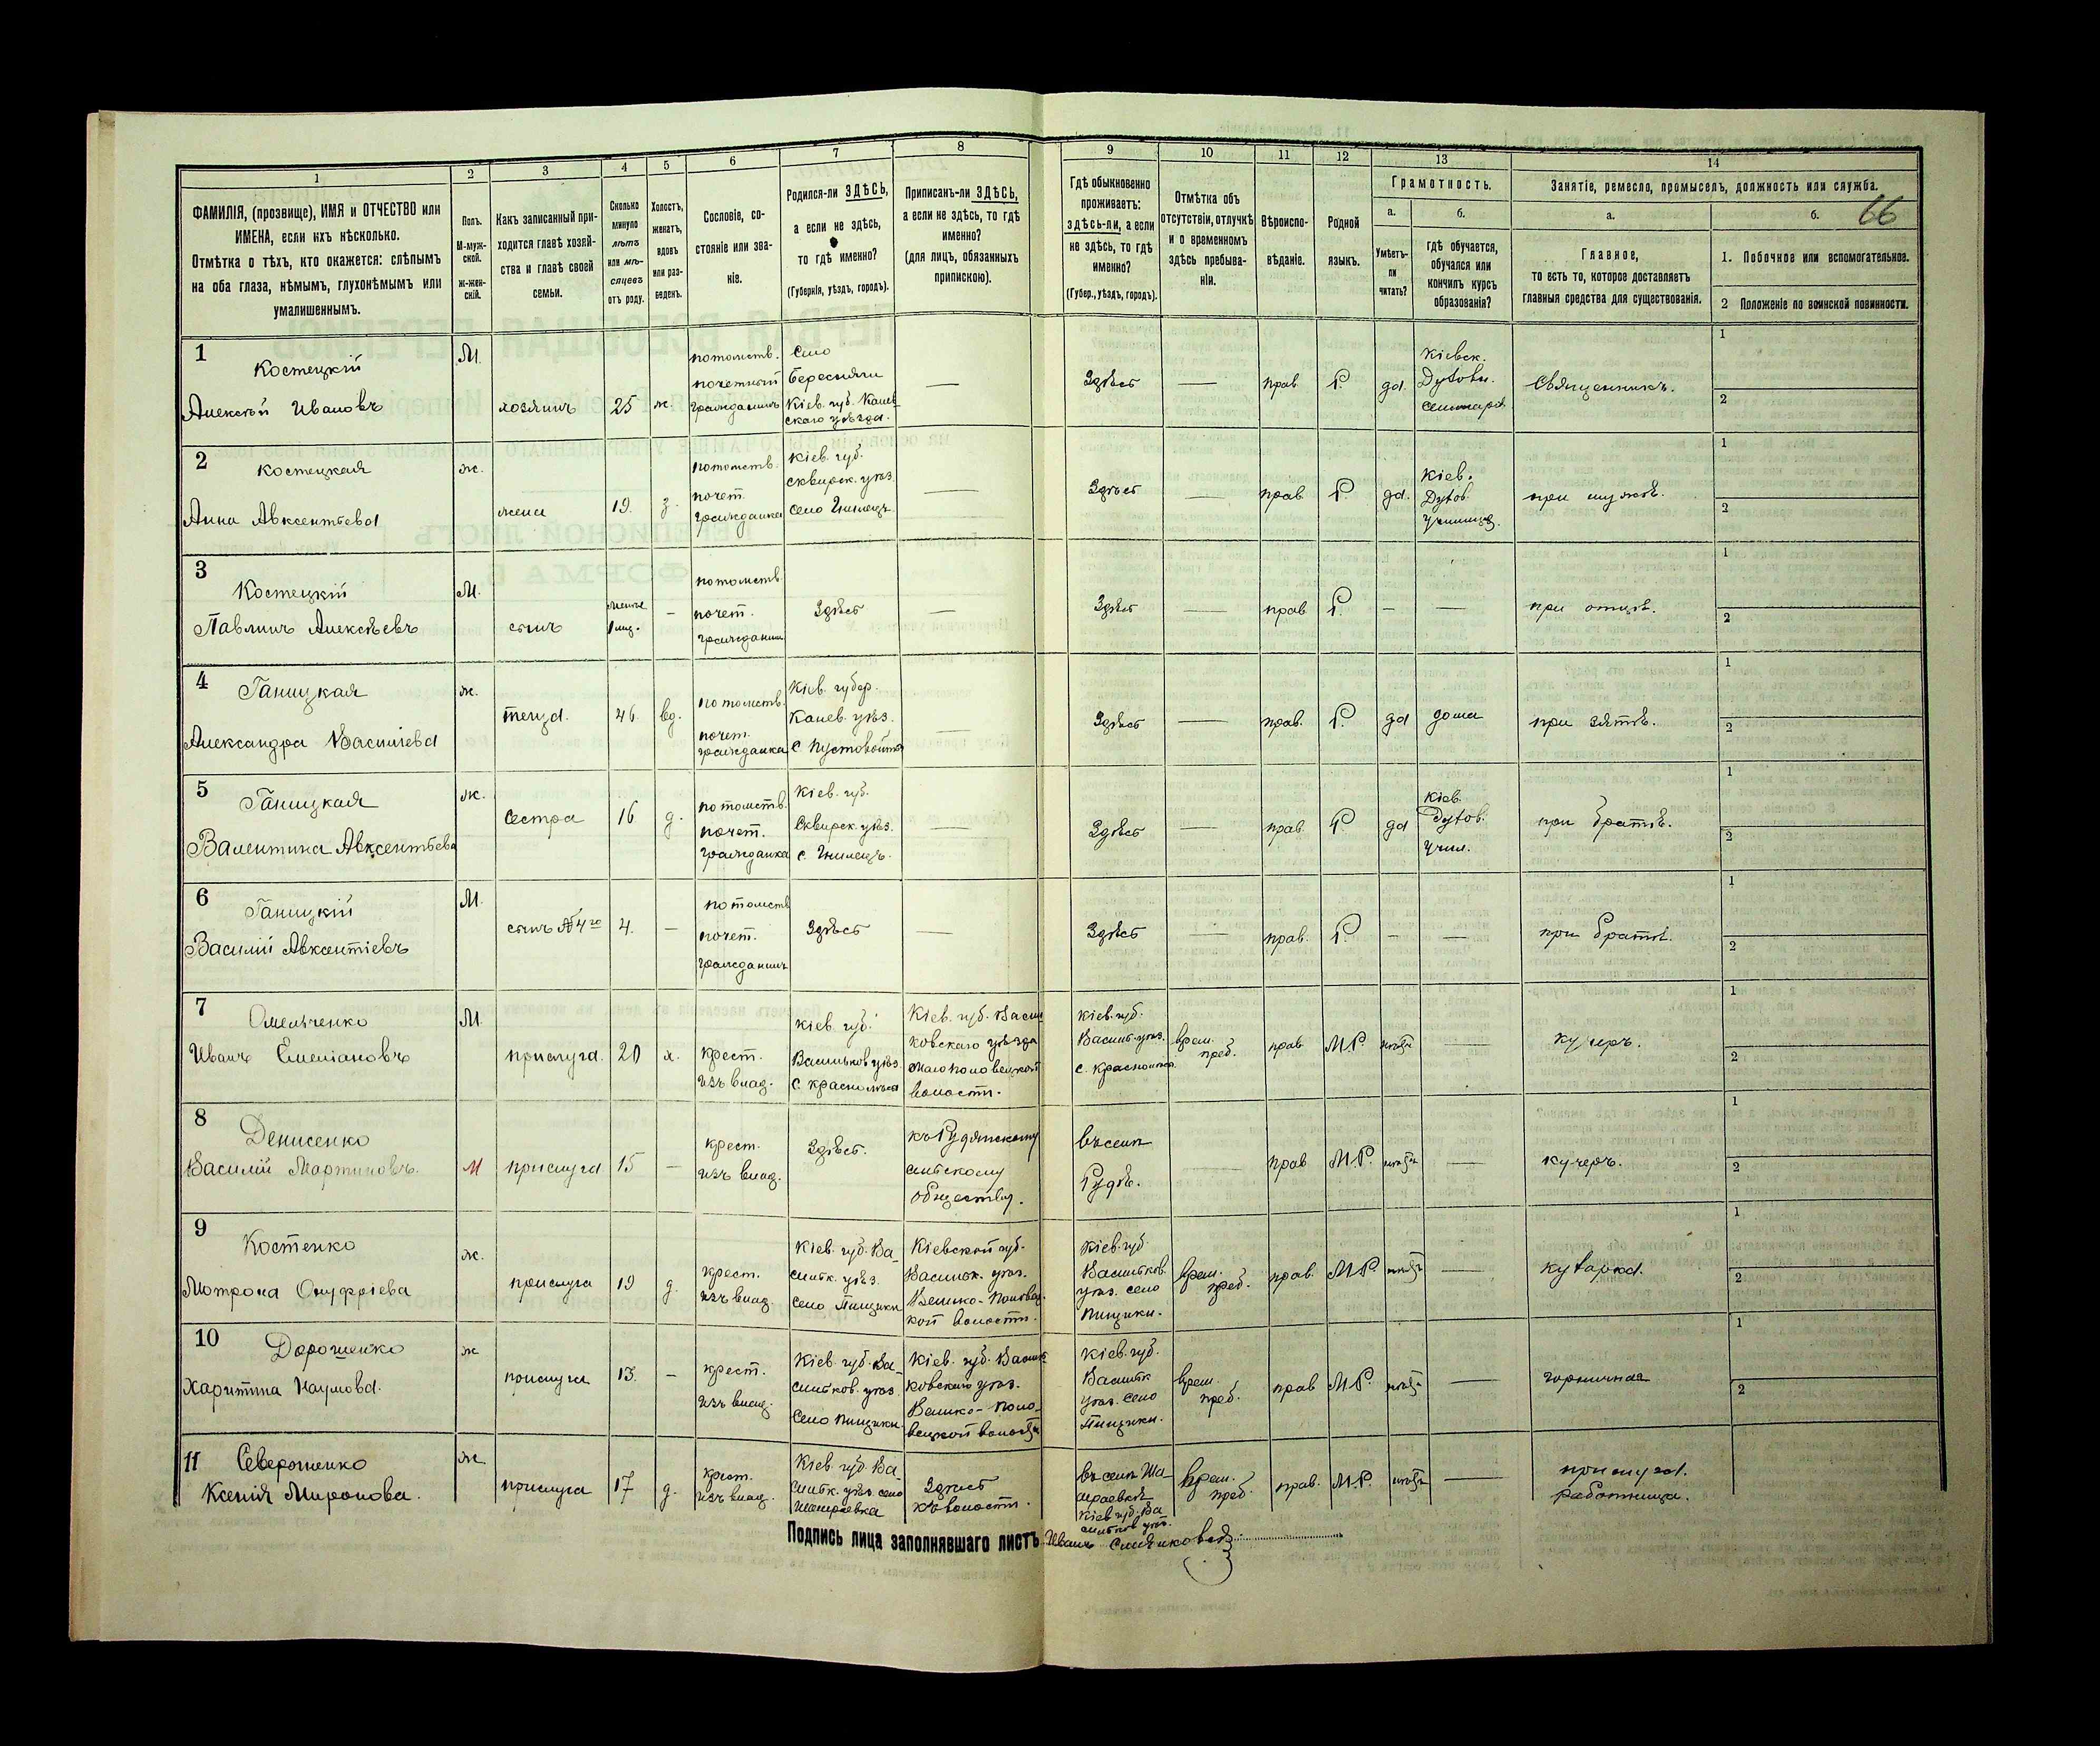 1 2 3 4 5 6 7 8 9 10 11 12 13 14
ФАМИЛІЯ, (прозвище), ИМЯ и ОТЧЕСТВО или
ИМЕНА, если ихъ нѣсколько.
Отмѣтка о тѣхъ, кто окажется: слѣпымъ
на оба глаза, нѣмымъ, глухонѣмымъ или
умалишеннымъ.
Полъ.
М-муж-
ской.
ж-жен-
скій.
Какъ записанный при-
ходится главѣ хозяй-
ства и главѣ своей
семьи.
Сколько
минуло
лѣтъ
или мѣ-
сяцевъ
отъ роду.
Холостъ,
женатъ,
вдовъ
или раз-
веденъ.
Сословіе, со-
стояніе или зва-
ніе.
Родился-ли ЗДѢСЬ,
а если не здѣсь,
то гдѣ именно?
(Губернія, уѣздъ, городъ).
Приписанъ-ли ЗДѢСЬ,
а если не здѣсь, то гдѣ
именно?
(для лицъ, обязанныхъ
припискою).
Гдѣ обыкновенно
проживаетъ:
здѣсь-ли, а если
не здѣсь, то гдѣ
именно?
(Губер., уѣздъ, городъ).
Отмѣтка объ
отсутствіи, отлучкѣ
и о временномъ
здѣсь пребыва-
ніи.
Вѣроиспо-
вѣданіе.
Родной
языкъ.
Грамотность.
а.
Умѣетъ-
ли
читать?
б.
гдѣ обучается,
обучался или
кончилъ курсъ
образованія?
Занятіе, ремесло, промыселъ, должность или служба.
а.
Главное,
то есть то, которое доставляетъ
главныя средства для существованія.
б.
66
1. Побочное или вспомогательное.
2 Положеніе по воинской повинности.
1
Костецкій
Алексѣй Ивановъ
М.
хозяинъ
25
ж.
потомств.
почетный
гражданинъ
Село
Бересняги
Кіев. губ. Канев-
скаго уѣзда.
—
Здѣсь
—
прав
Р.
да
Кіевск.
Духовн.
семинарія
Священникъ.
1
2
2
Костецкая
Анна Авксентьева
ж.
жена
19.
з.
потомств.
почет.
гражданка
Кіев. губ.
сквирск. уѣз.
село Гнилецъ
—
Здѣсь
—
прав
Р.
да.
Кіев.
Духов.
Училище.
при мужѣ.
1
2
3
Костецкій
Павлинъ Алексѣевъ
М.
сынъ
менѣе
1 мѣс.
—
потомств.
почет.
гражданин
Здѣсь
—
Здѣсь
—
прав
Р.
—
—
при отцѣ.
1
2
4
Ганицкая
Александра Васильева
ж.
теща.
46
вд.
потомств.
почет.
гражданка
Кіев. губер.
Канев. уѣз.
с. Пустовойты
—
Здѣсь
—
прав.
Р.
да
дома
при зятѣ.
1
2
5
Ганицкая
Валентина Авксентьева
ж.
сестра
16
д.
потомств.
почет.
гражданка
Кіев. губ.
Сквирск. уѣз.
с. Гнилецъ.
—
Здѣсь
—
прав.
Р.
да
Кіев.
Духов.
Учил.
при братѣ.
1
2
6
Ганицкій
Василій Авксентіевъ
М.
сынъ № 4го
4.
—
потомств
почет.
гражданинъ
Здѣсь
—
Здѣсь
—
прав.
Р.
—
—
при братѣ.
1
2
7
Омельченко
Иванъ Емеліановъ
М.
прислуга.
20
х.
Крест.
изъ влад.
Кіев. губ.
Васильков уѣз.
с. Краснолѣса
Кіев. губ. Василь-
ковскаго уѣзда
Малополовецкой
волости.
Кіев. губ.
Васильк. уѣз.
с. Краснолѣса
врем.
преб.
прав
М.Р.
—
кучеръ.
1
2
8
Денисенко
Василій Мартиновъ.
М
прислуга
15
—
крест.
изъ влад.
Здѣсь.
къ Рудянскому
сельскому
обществу.
въ селѣ
Рудѣ.
прав
М.Р.
—
кучеръ.
1
2
9
Костенко
Мотрона Онуфріева
ж.
прислуга
19
д.
Крест.
изъ влад.
Кіев. губ. Ва-
сильк. уѣз.
село Пищики
Кіевской губ.
Васильк. уѣз.
Велико-Половец-
кой волости.
Кіев. губ.
Васильков.
уѣз. село
Пищики.
врем.
преб.
прав.
М.Р.
—
кухарка.
1
2
10
Дорошенко
Харитина Наумова.
ж
прислуга
13.
—
крест.
изъ влад.
Кіев. губ. Ва-
сильков. уѣз.
Село Пищики.
Кіев. губ. Василь-
ковскаго уѣз.
Велико-Поло-
вецкой волости
Кіев. губ.
Васильк
уѣз. село
Пищики.
врем.
преб.
прав
М.Р.
—
горничная
1
2
11
Северошенко
Ксенія Миронова.
ж
прислуга
17
д.
Крест.
изъ влад.
Кіев. губ. Ва-
сильк. уѣз. село
Здѣсь
къ волости.
въ селѣ
Кіев. губ. Ва-
сильков уѣз.
врем.
преб.
прав.
М.Р.
—
прислуга.
работница.
Подпись лица заполнявшаго листъ Иванъ